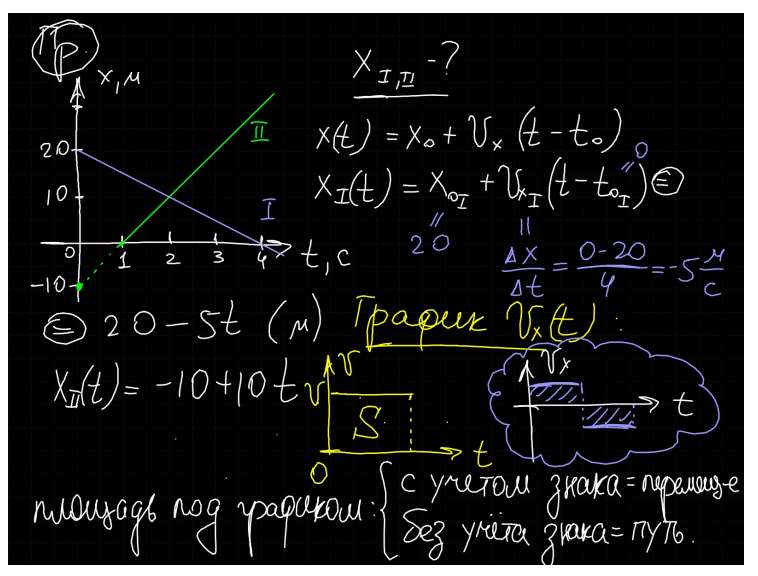 Пр.
x, м
20
10
0
1 2 3 4
t, c
-10
I
II
x I, II - ?
x(t) = x₀ + Vₓ (t - t₀)
x_I(t) = x₀_I + Vₓ_I (t - t₀_I) =
20
0
Δx/Δt = (0-20)/4 = -5 м/с
= 20 - 5t (м)
График Vₓ(t):
x_II(t) = -10 + 10t
V
V
S
0
t
Vₓ
t
площадь под графиком: с учетом знака = перемещ-е
без учёта знака = путь.